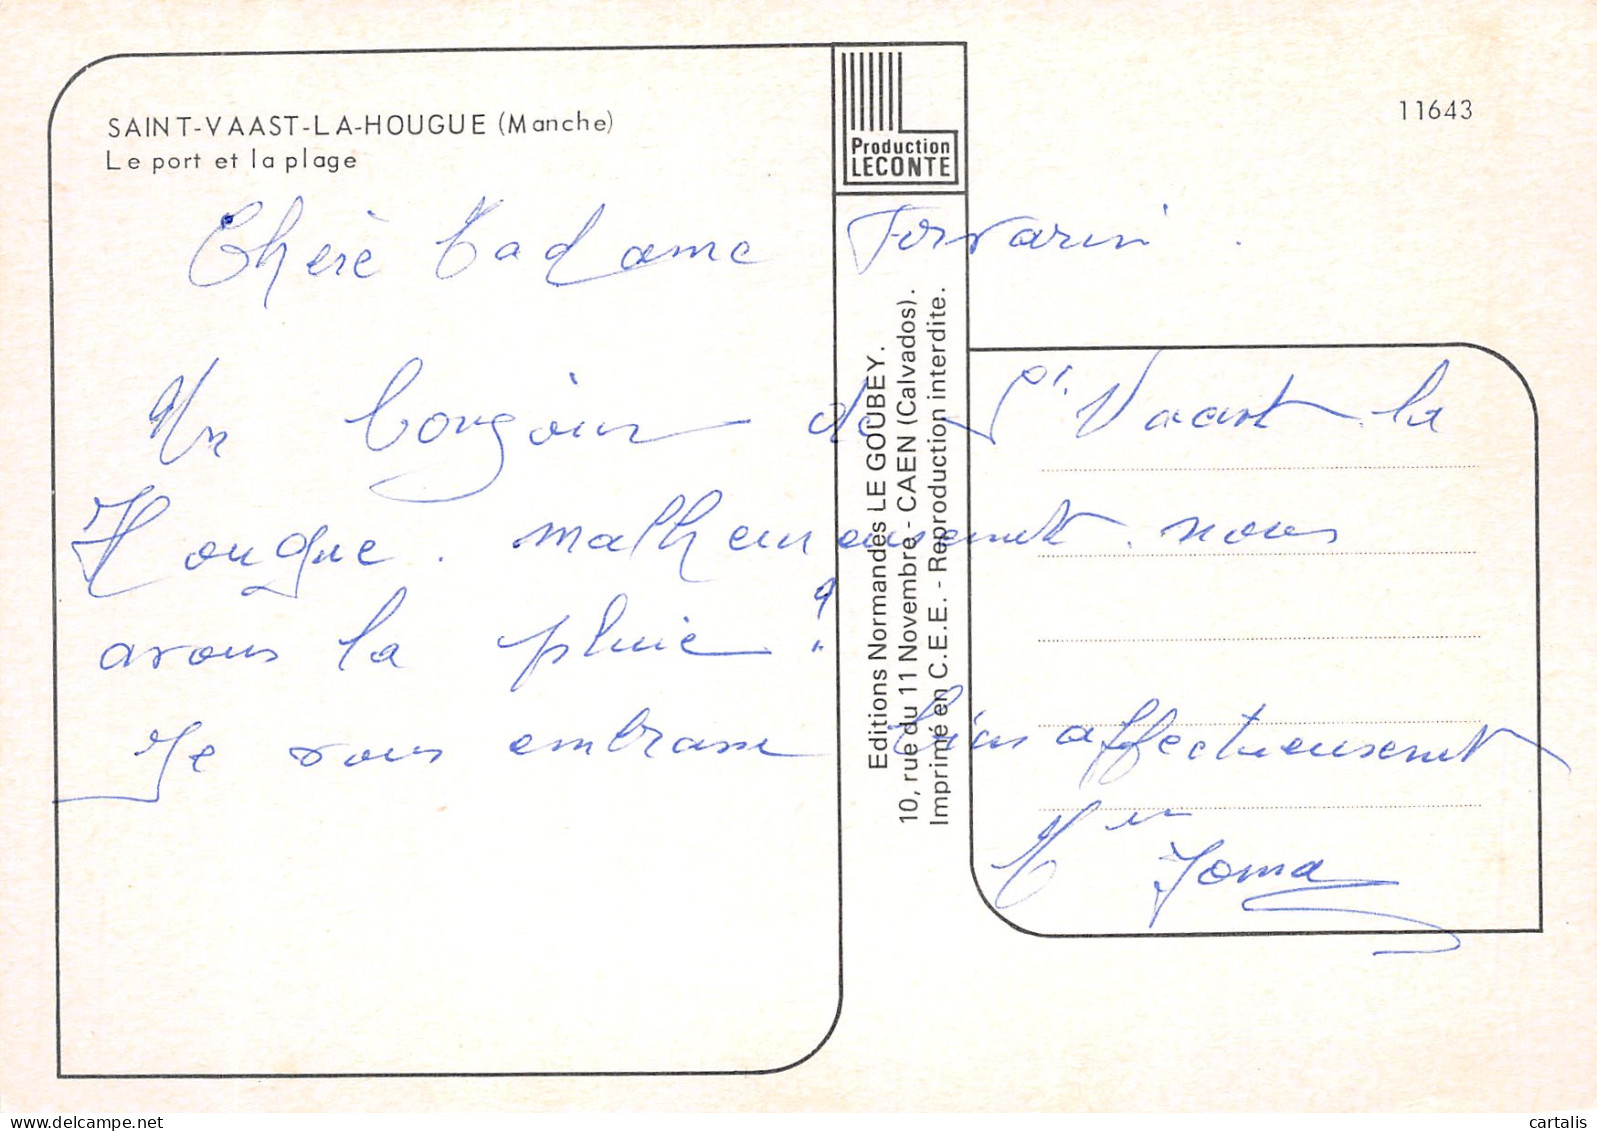 SAINT-VAAST-LA-HOUGUE (Manche)
Le port et la plage
11643
Production
LECONTE
Editions Normandes LE GOUBEY.
10, rue du 11 Novembre - CAEN (Calvados).
Imprimé en C.E.E. - Reproduction interdite.
Chère Madame
Un bonjour de St Vaast la
Hougue. malheureusement. nous
avons la pluie !
Je vous embrasse bien affectueusement
cartalis